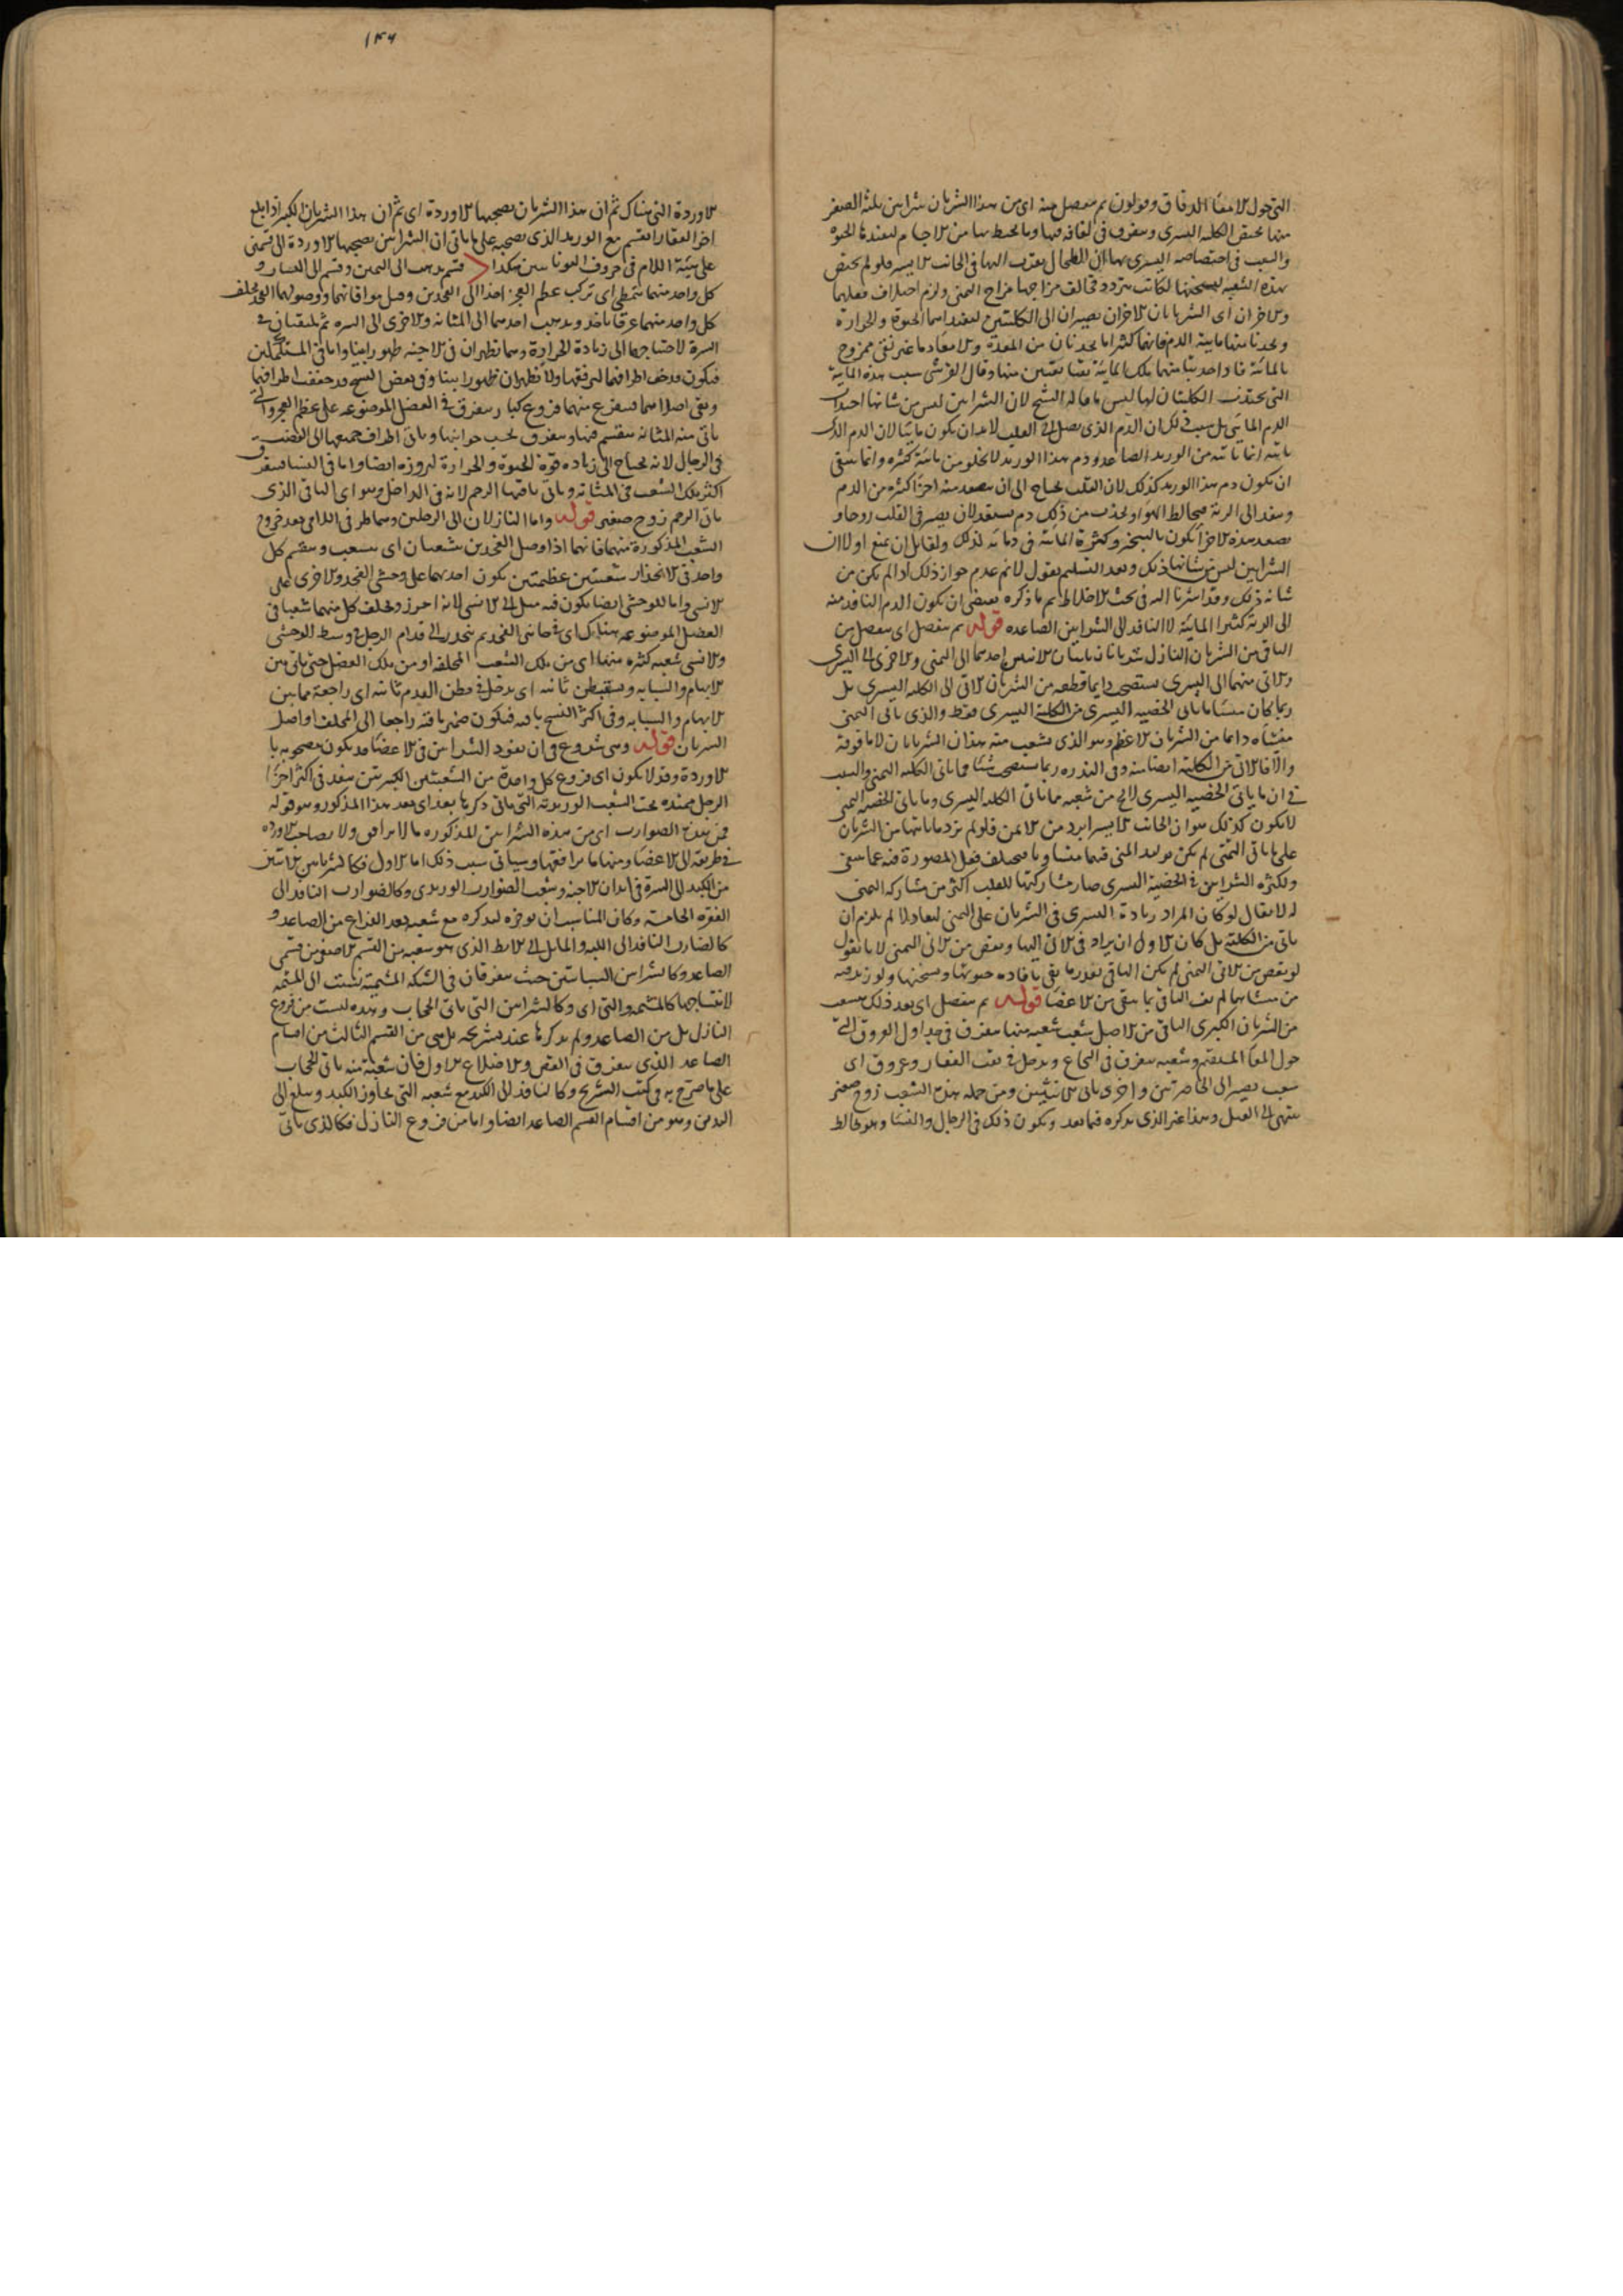 التى حول الامعا الدقاق وقولون ثم ينفصل منه اى من هذا الشريان شرايين ثلثة الصغير
منها يختص الكلية اليسرى ويتفرق فى لفافة فيها وما يحيط بها من الاجسام ليفيدها الحيوة
والسبب فى اختصاصه اليسرى بها ان الطحال يقرب اليها فى الجانب الايسر فلو لم يختص
هذه الشعبة لتسخينها لكانت تبرد فيخالف مزاجها مزاج اليمنى ولزم اختلاف فعليهما
والاخران اى الشريانان الاخران يصيران الى الكليتين ليفيداهما الحيوة والحرارة
ويجذبا منها مايية الدم فانهما كثيرا ما يجذبان من المعدة والامعا دما غير نقى ممزوج
بالمائية فاذا جذبتا منهما تلك المائية بقيا نقيين منها وقال القرشى سبب هذه المائية
التى تجذب الكليتان لها ليس ما قاله الشيخ لان الشرايين ليس من شانها اجتذاب
الدم المائى بل سبب ذلك ان الدم الذى يصل الى القلب لابد ان يكون مائيا لان الدم الذى
ياتيه انما ياتيه من الوريد الصاعد ودم هذا الوريد لا يخلو من مائية كثيرة وانما ينبغى
ان يكون دم هذا الوريد كذلك لان القلب يحتاج الى ان يصعد منه اجزا كثيرة من الدم
وينفد الى الرية فيخالط الهوا ويجذب من ذلك دم مستعد لان يصير فى القلب روحا و
تصعد هذه الاجزا يكون بالتبخر وكثرة المائية فى دمائه لذلك ولقائل ان يمنع اولا ان
الشرايين ليس من شانها ذلك وبعد التسليم نقول لا نم عدم جواز ذلك اذا لم يكن من
شانه ذلك وقد اشرنا اليه فى بحث الاخلاط ثم ما ذكره يقتضى ان يكون الدم النافد منه
الى الرية كثير المائية لا النافد الى الشرايين الصاعدة قوله ثم ينفصل اى ينفصل من
الباقى من الشريان النازل شريانان ياتيان الانثيين احدهما الى اليمنى والاخرى الى اليسرى
والاتى منهما الى اليسرى يستصحب دايما قطعة من الشريان الاتى الى الكلية اليسرى بل
ربما كان منشا ما ياتى الخصية اليسرى من الكلية اليسرى فقط والذى ياتى اليمنى
منشاه دايما من الشريان الاعظم وهو الذى يتشعب منه هذان الشريانان لا ما فوقه
والا فالاتى من الكلية ايضا منه وفى الندرة ربما يستصحب شيا مما ياتى الكلية اليمنى والسبب
فى ان ما ياتى الخصية اليسرى لا يخ من شعبة مما ياتى الكلية اليسرى وما ياتى الخصية اليمنى
لا يكون كذلك هو ان الجانب الايسر ابرد من الايمن فلو لم يزد ما ياتيها من الشريان
على ما ياتى اليمنى لم يكن توليد المنى فيهما متساويا فيختلف فعل المصورة فيه عما ينبغى
ولكثرة الشرايين فى الخصية اليسرى صار مشاركتها للقلب اكثر من مشاركة اليمنى
له لا يقال لو كان المراد زيادة اليسرى فى الشريان على اليمنى ليعادلا لم يلزم ان
ياتى من الكلية بل كان الاول ان يزاد فى الاتى اليها وينقص من الاتى اليمنى لانا نقول
لو ينقص من الاتى اليمنى لم يكن الباقى بقدر ما يفى بافادة حيوتها وتسخينها ولو زيد فيه
من منشائها لم يف الباقى بما بقى من الاعضا قوله ثم ينفصل اى بعد ذلك يتشعب
من الشريان الكبرى الباقى من الاصل شعب شعبة منها يتفرق فى جداول العروق التى
حول المعا المستقيم وشعبه يتفرق فى النخاع ويدخل فى ثقب الفقار وعروق اى
شعب يصير الى الخاصرتين واخرى ياتى الانثيين ومن جملة هذه الشعب زوج صغير
ينتهى الى القبل وهذا غير الذى يذكره فيما بعد ويكون ذلك فى الرجال والنسا وهو يخالط
١٣٦
الاوردة التى هناك ثم ان هذا الشريان يصحبها الاوردة اى ثم ان هذا الشريان الكبير اذا بلغ
اخر الفقار انقسم مع الوريد الذى يصحبه على ما ياتى ان الشرايين يصحبها الاوردة الى قسمين
على هيئة اللام فى حروف اليونانيين هكذا > قسم يذهب الى اليمين وقسم الى اليسار و
كل واحد منهما يتمطى اى تركب عظم العجز اخذا الى الفخذين وقبل موافاتهما ووصولهما الفخذ يخلف
كل واحد منهما عرقا ياخذ ويذهب احدهما الى المثانة والاخرى الى السرة ثم يلتقيان فى
السرة لاحتياجها الى زيادة الحرارة وهما تظهران فى الاجنة ظهورا بينا واما فى المستكملين
فيكون قد جف اطرافهما لدقتها ولا تظهران ظهورا بينا وفى بعض النسخ قد جففت اطرافهما
وبقى اصلاهما فيتفرع منهما فروع كبار ويتفرق فى العضل الموضوعة على عظم العجز والتى
ياتى منه المثانة ينقسم فيها ويتفرق بحسب جوانبها وياتى اطراف جميعها الى القضيب
فى الرجال لانه يحتاج الى زيادة قوة الحيوة والحرارة لبروزه ايضا واما فى النسا فيتفرق
اكثر تلك الشعب فى المثانة وياتى باقيها الرحم لانه فى الداخل وهو اى الباقى الذى
ياتى الرحم زوج صغير قوله واما النازلان الى الرجلين وهما طرفى اللامى بعد خروج
الشعب المذكورة منهما فانهما اذا وصل الفخذين تشعبان اى يتشعب وينقسم كل
واحد فى الانحدار شعبتين عظيمتين يكون احدهما على وحشى الفخذ والاخرى على
الانسى واما للوحشى ايضا يكون فيه ميل الى الانسى لانه احرز ويخلف كل منهما شعبا فى
العضل الموضوعة هناك اى فى جانبى الفخذ ثم ينحدر الى قدام الرجل فى وسط الوحشى
والانسى شعبة كثيرة منهما اى من تلك الشعب المخلفة او من تلك العضل حتى ياتى بين
الابهام والسبابة ويستبطن ثانية اى يدخل فى بطن القدم ثانية اى راجعة مما بين
الابهام والسبابة وفى اكثر النسخ باقيه فيكون ضمير باقيه راجعا الى المخلف او اصل
الشريان قوله وهى شروع فى ان نفود الشرايين فى الاعضا قد يكون مصحوبة با
الاوردة وقد لا يكون اى فروع كل واحدة من الشعبتين الكبيرتين ينفد فى اكثر اجزا
الرجل ممتدة تحت الشعب الوريدية التى ياتى ذكرها بعد اى بعد هذا المذكور وهو قوله
فمن هذه الضوارب اى من هذه الشرايين المذكورة ما لا يرافق ولا يصاحب الاوردة
فى طريقه الى الاعضا ومنها ما يرافقها وسياتى سبب ذلك اما الاول فكالشريانين الاتيين
من الكبد الى السرة فى ابدان الاجنة وشعب الضوارب الوريدى وكالضوارب النافد الى
الفقرة الخامسة وكان المناسب ان يوخره ليذكره مع شعبه بعد الفراغ من الصاعد و
كالضارب النافد الى اللبة والمايل الى الابط الذى هو شعبة من القسم الاصغر من قسمى
الصاعد وكالشرايين السباتيين حيث يتفرقان فى الشبكة المشيمية تشتت الى المشيمة
لانتساجها كالمشيمة والتى اى وكالشرايين التى ياتى الحجاب وهذه ليست من فروع
النازل بل من الصاعد ولم يذكرها عند تشريحه بل هى من القسم الثالث من اقسام
الصاعد الذى يتفرق فى القص والاضلاع الاول فان شعبة منه ياتى الحجاب
على ما صرح به فى كتب التشريح وكالنافد الى الكتد مع شعبه التى تجاوز الكبد ويبلغ الى
اليدين وهو من اقسام القسم الصاعد ايضا واما من فروع النازل فكالذى ياتى